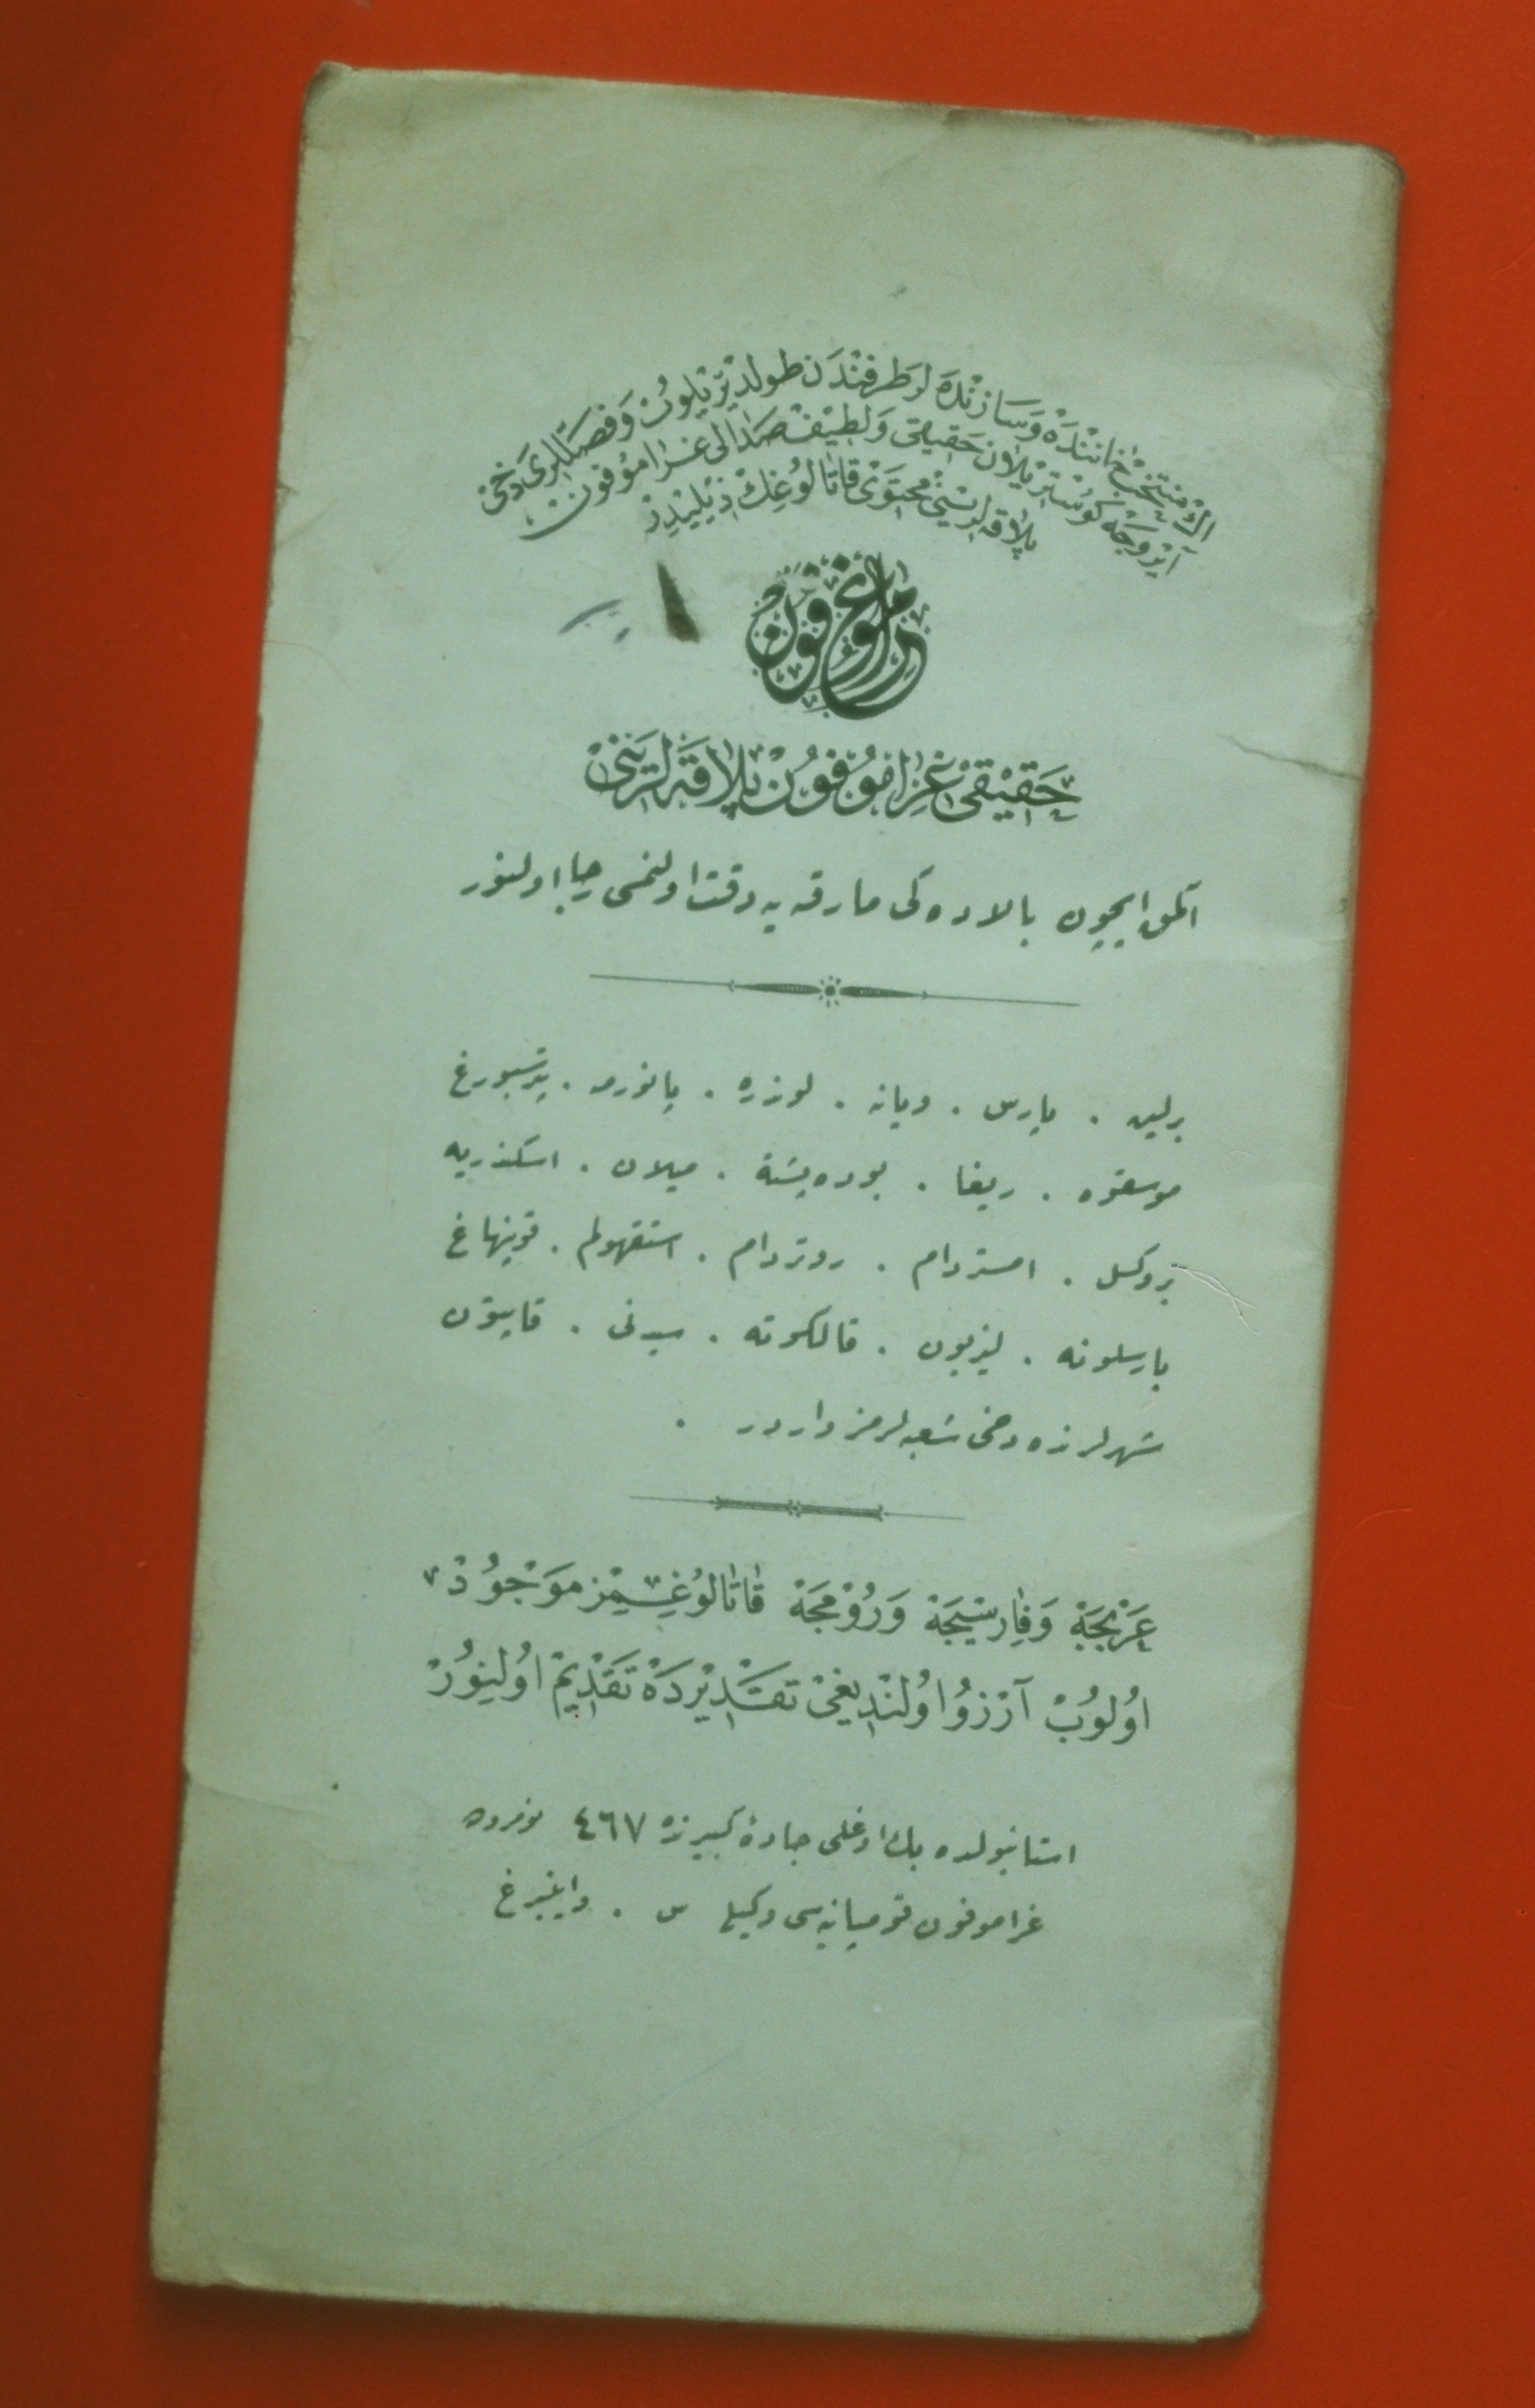 اڭ منتخب خاننده وسازنده لر طرفندن طولديريلوب وفصللرى دخى
آيروجه كوستريلان حقيقى ولطيف صدالى غراموفون
پلاقه لرينى محتوى قاتالوغك ذيليدر
غراموفون
حقيقى غراموفون پلاقه لرينى
آلمق ايچون بالاده كى مارقه يه دقت اولنمسى رجا اولنور
برلين . پارس . ويانه . لوندره . پانورمه . پترسبورغ
موسقوه . ريغا . بوده پشته . ميلان . اسكندريه
بروكسل . امستردام . روتردام . استقهولم . قوپنهاغ
بارسلونه . ليزبون . قالكوته . سيدنى . قاپتون
شهرلرنده دخى شعبه لرمز واردر .
عربجه وفارسيجه ورومجه قاتالوغيمز موجود
اولوب آرزو اولنديغى تقديرده تقديم اولنور
استانبولده بك اوغلى جادۀ كبيرنده ٤٦٧ نومروده
غراموفون قومپانيه سى وكيلى س . وايغبرغ